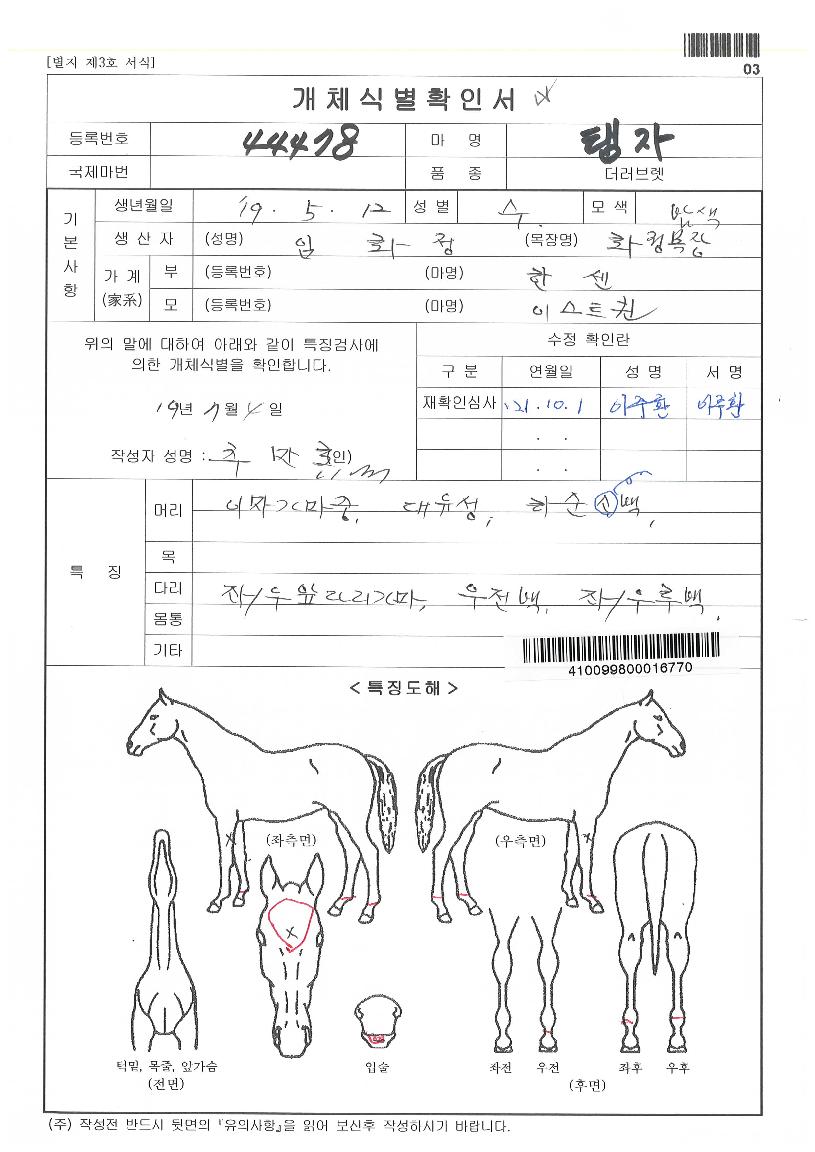 [별지 제3호 서식]
03
개체식별확인서
등록번호 44478 마 명 탭자
국제마번 품 종 더러브렛
기본사항
생년월일 '19. 5. 12 성별 수 모색 밤색
생산사 (성명) 임 화 정 (목장명) 화정목장
가계 (家系) 부 (등록번호) (마명) 한 센
모 (등록번호) (마명) 이스트퀸
위의 말에 대하여 아래와 같이 특징검사에
의한 개체식별을 확인합니다.
'19년 7월 4일
작성자 성명 : 인)
수정 확인란
구 분 연월일 성 명 서 명
재확인심사 '21.10.1 이주환 이주환
. .
. .
특 징
머리 이자가마중, 대유성, 하순소백,
목
다리 좌/우앞다리가마, 우전백, 좌/우후백.
몸통
기타
410099800016770
< 특징도해 >
(좌측면) (우측면)
턱밑, 목줄, 앞가슴 입술 좌전 우전 좌후 우후
(전면) (후면)
(주) 작성전 반드시 뒷면의 『유의사항』을 읽어 보신후 작성하시기 바랍니다.